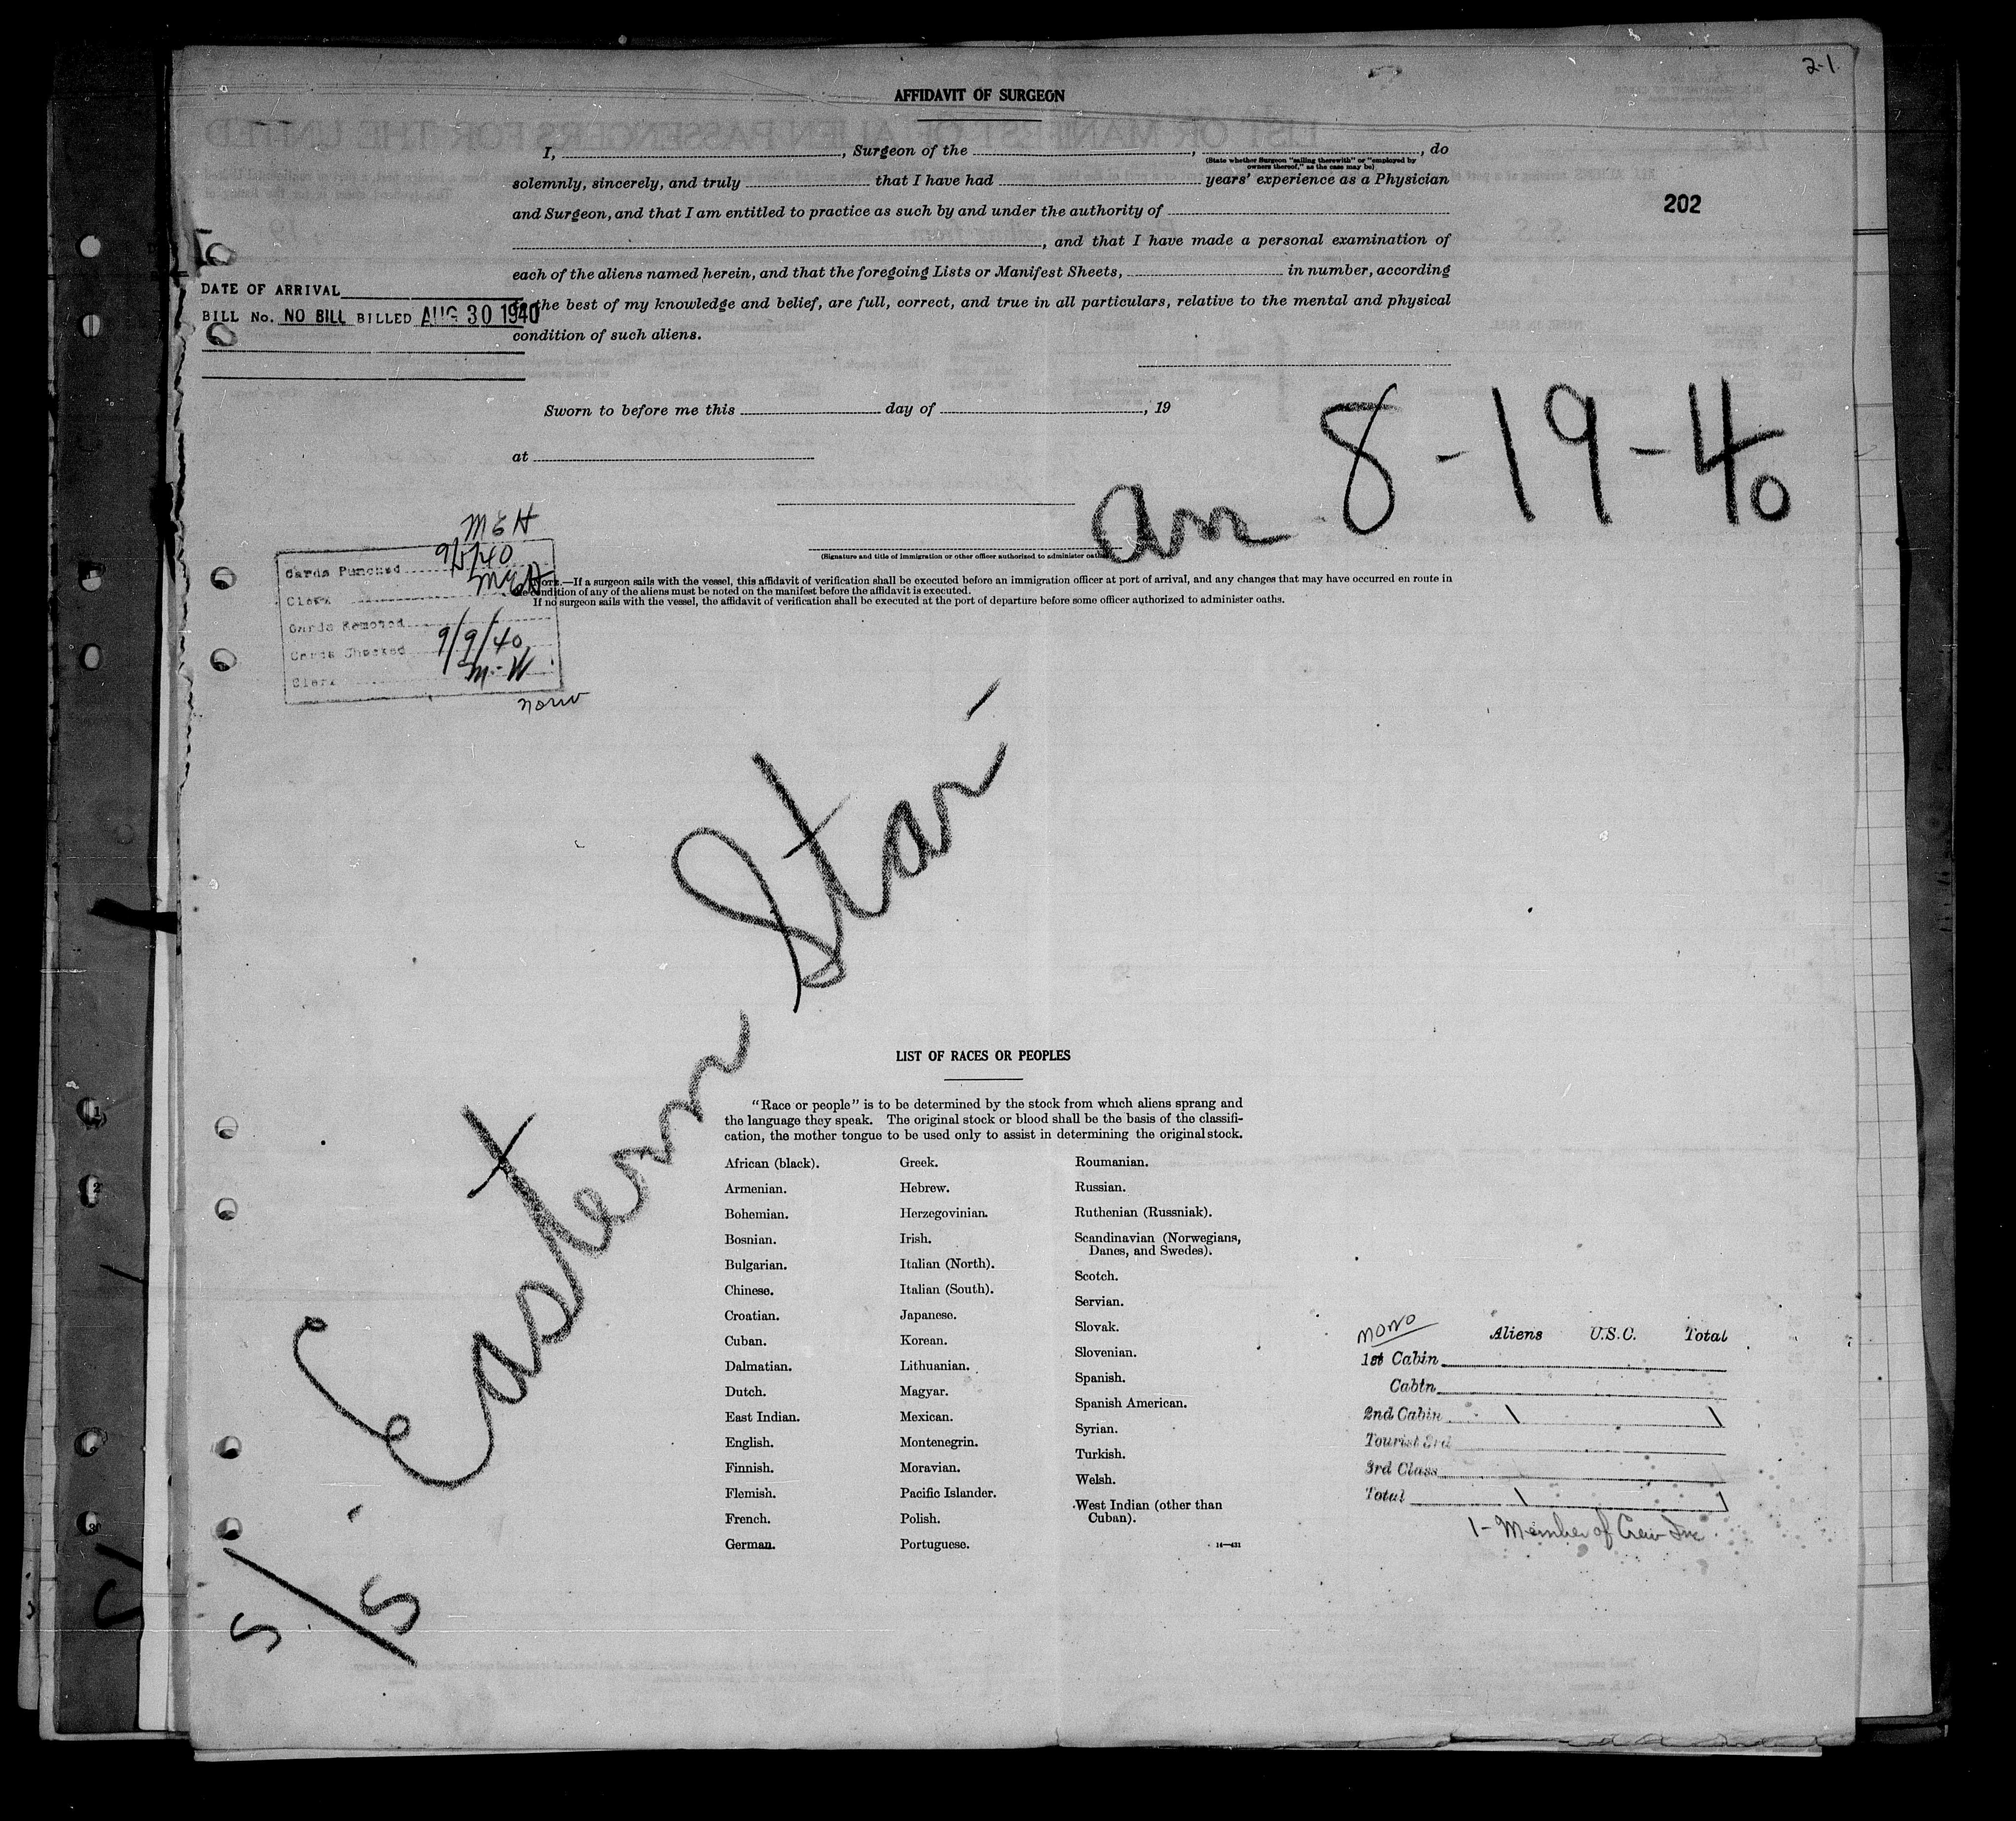 2-1
AFFIDAVIT OF SURGEON
I, , Surgeon of the , , do
(State whether Surgeon "sailing therewith" or "employed by
owners thereof," as the case may be)
solemnly, sincerely, and truly that I have had years' experience as a Physician
and Surgeon, and that I am entitled to practice as such by and under the authority of
202
, and that I have made a personal examination of
each of the aliens named herein, and that the foregoing Lists or Manifest Sheets, in number, according
DATE OF ARRIVAL
the best of my knowledge and belief, are full, correct, and true in all particulars, relative to the mental and physical
BILL No. NO BILL BILLED AUG 30 1940
condition of such aliens.
Sworn to before me this day of , 19
at
8-19-40
(Signature and title of immigration or other officer authorized to administer oaths)
NOTE.—If a surgeon sails with the vessel, this affidavit of verification shall be executed before an immigration officer at port of arrival, and any changes that may have occurred en route in
the condition of any of the aliens must be noted on the manifest before the affidavit is executed.
If no surgeon sails with the vessel, the affidavit of verification shall be executed at the port of departure before some officer authorized to administer oaths.
M E H
Cards Punched 9/5/40
Clerk
Cards
Cards Checked 9/9/40
Clerk M.W.
S/S. Eastern Star
LIST OF RACES OR PEOPLES
"Race or people" is to be determined by the stock from which aliens sprang and
the language they speak. The original stock or blood shall be the basis of the classifi-
cation, the mother tongue to be used only to assist in determining the original stock.
African (black).
Armenian.
Bohemian.
Bosnian.
Bulgarian.
Chinese.
Croatian.
Cuban.
Dalmatian.
Dutch.
East Indian.
English.
Finnish.
Flemish.
French.
German.
Greek.
Hebrew.
Herzegovinian.
Irish.
Italian (North).
Italian (South).
Japanese.
Korean.
Lithuanian.
Magyar.
Mexican.
Montenegrin.
Moravian.
Pacific Islander.
Polish.
Portuguese.
Roumanian.
Russian.
Ruthenian (Russniak).
Scandinavian (Norwegians,
Danes, and Swedes).
Scotch.
Servian.
Slovak.
Slovenian.
Spanish.
Spanish American.
Syrian.
Turkish.
Welsh.
West Indian (other than
Cuban).
14—431
Aliens U.S.C. Total
1st Cabin
Cabin
2nd Cabin 1 1
Tourist 3rd
3rd Class
Total 1 1
1- Member of Crew Inc